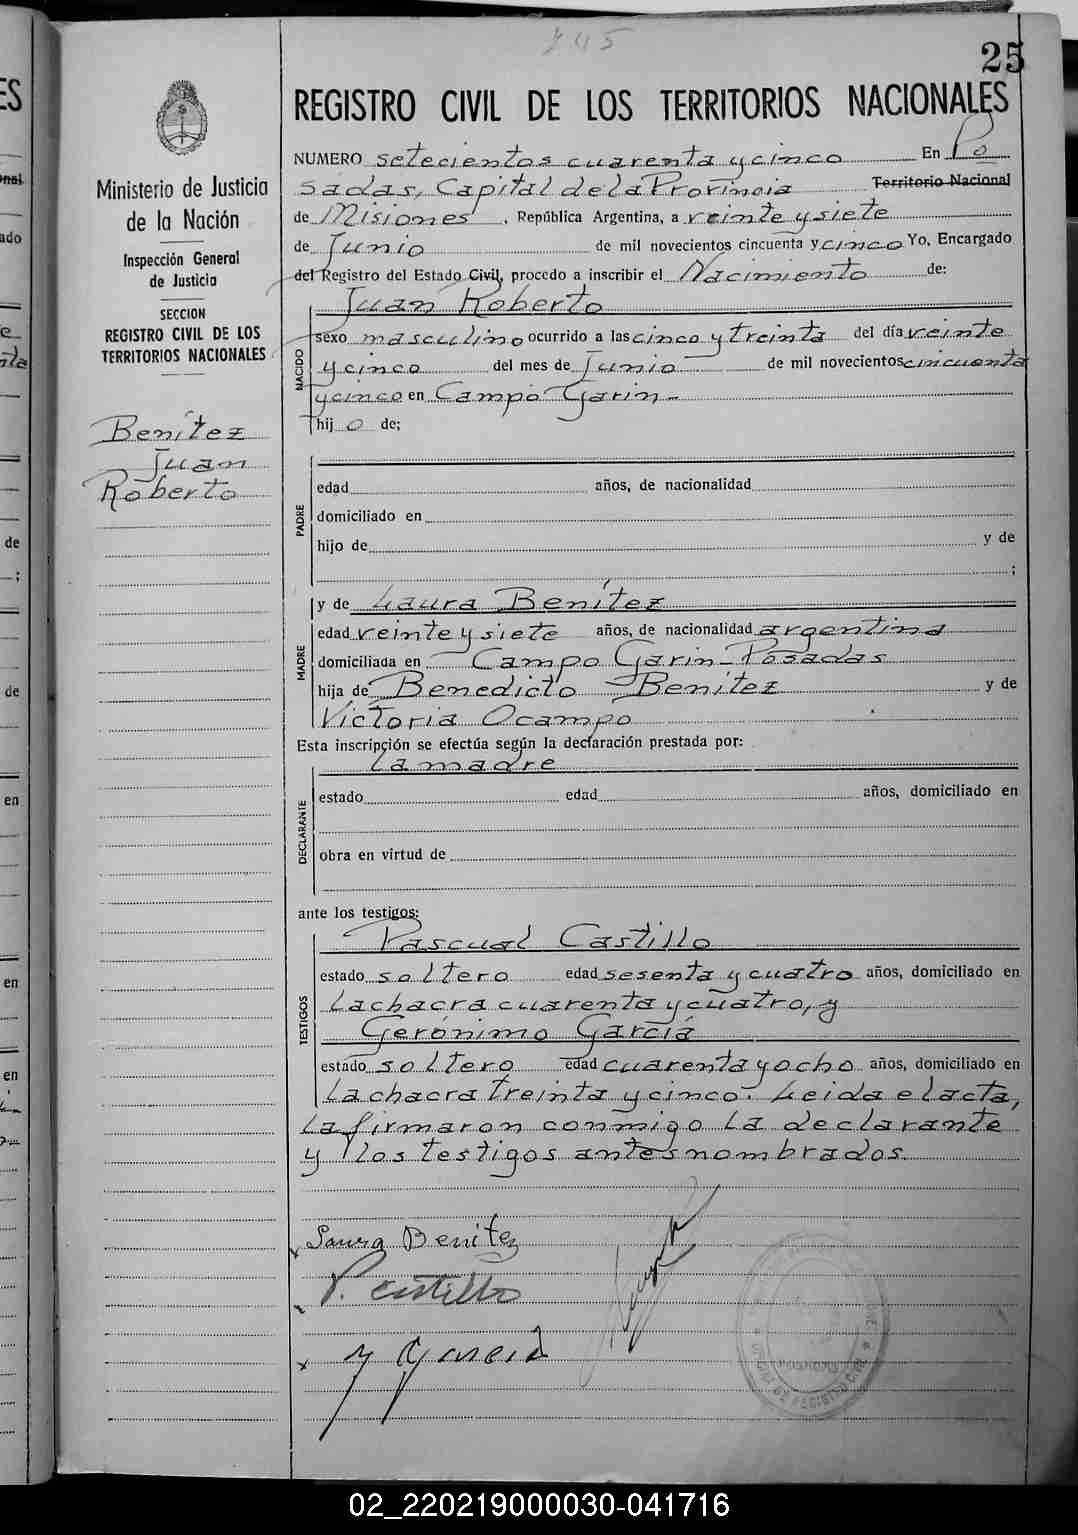 745
25
REGISTRO CIVIL DE LOS TERRITORIOS NACIONALES
Ministerio de Justicia
de la Nación
Inspección General
de Justicia
SECCION
REGISTRO CIVIL DE LOS
TERRITORIOS NACIONALES
Benítez
Juan
Roberto
NUMERO setecientos cuarenta y cinco En Po
sadas, Capital de la Provincia Territorio Nacional
de Misiones, República Argentina, a veinte y siete
de Junio de mil novecientos cincuenta y cinco Yo, Encargado
del Registro del Estado Civil, procedo a inscribir el Nacimiento de:
Juan Roberto
NACIDO
sexo masculino ocurrido a las cinco y treinta del día veinte
y cinco del mes de Junio de mil novecientos cincuenta
y cinco en Campo Garin.-
hijo de;
PADRE
edad años, de nacionalidad
domiciliado en
hijo de y de
;
y de Laura Benítez
MADRE
edad veinte y siete años, de nacionalidad argentina
domiciliada en Campo Garin-Posadas
hija de Benedicto Benítez y de
Victoria Ocampo
Esta inscripción se efectúa según la declaración prestada por:
La madre
DECLARANTE
estado edad años, domiciliado en
obra en virtud de
ante los testigos:
Pascual Castillo
TESTIGOS
estado soltero edad sesenta y cuatro años, domiciliado en
La chacra cuarenta y cuatro, y
Gerónimo García
estado soltero edad cuarenta y ocho años, domiciliado en
La chacra treinta y cinco. Leida el acta,
La firmaron conmigo La declarante
y los testigos antes nombrados.
Laura Benitez
P. Castillo
y Garcia
02_220219000030-041716